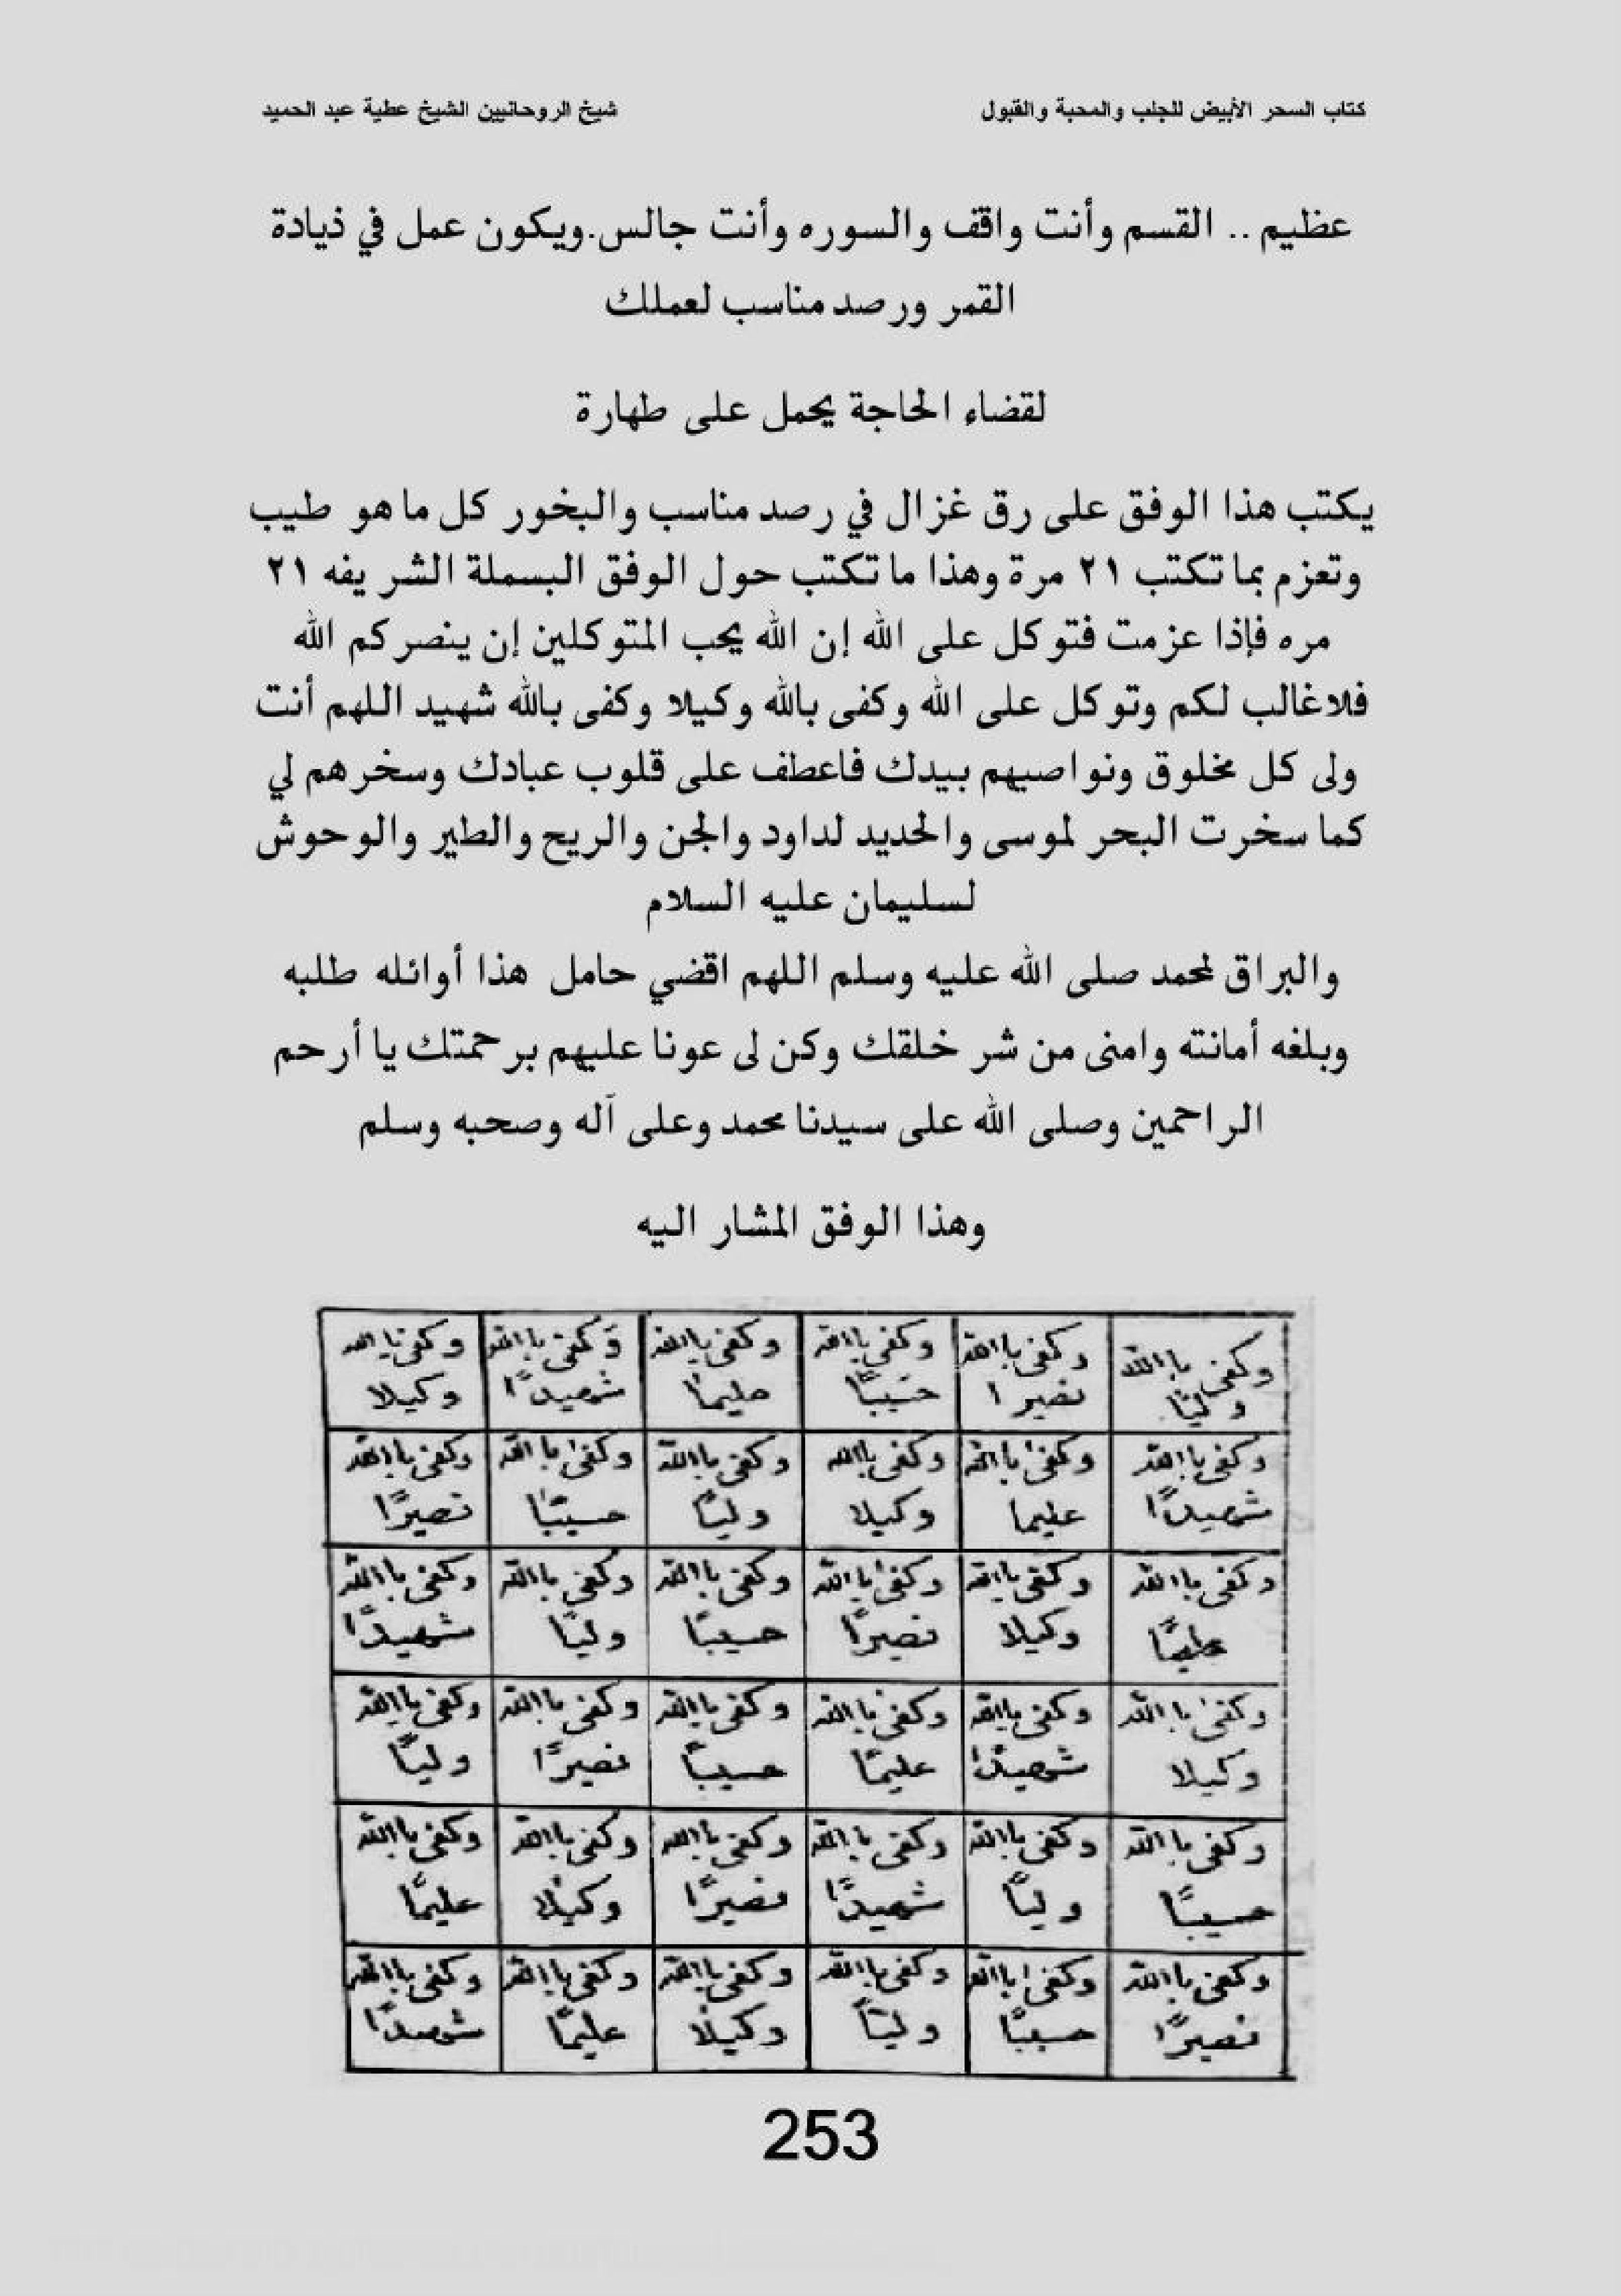 كتاب السحر الأبيض للجلب والمحبة والقبول
شيخ الروحانيين الشيخ عطية عبد الحميد
عظيم .. القسم وأنت واقف والسوره وأنت جالس.ويكون عمل في ذيادة
القمر ورصد مناسب لعملك
لقضاء الحاجة يحمل على طهارة
يكتب هذا الوفق على رق غزال في رصد مناسب والبخور كل ما هو طيب
وتعزم بما تكتب ٢١ مرة وهذا ما تكتب حول الوفق البسملة الشريفه ٢١
مره فإذا عزمت فتوكل على الله إن الله يحب المتوكلين إن ينصركم الله
فلا غالب لكم وتوكل على الله وكفى بالله وكيلا وكفى بالله شهيد اللهم أنت
ولى كل مخلوق ونواصيهم بيدك فاعطف على قلوب عبادك وسخرهم لي
كما سخرت البحر لموسى والحديد لداود والجن والريح والطير والوحوش
لسليمان عليه السلام
والبراق لمحمد صلى الله عليه وسلم اللهم اقضي حامل هذا أوائله طلبه
وبلغه أمانته وامنى من شر خلقك وكن لى عونا عليهم برحمتك يا أرحم
الراحمين وصلى الله على سيدنا محمد وعلى آله وصحبه وسلم
وهذا الوفق المشار اليه
وكفى باالله وليًا وكفى باالله نصيرا وكفى باالله حسيبًا وكفى باالله عليمًا وكفى باالله شهيدًا وكفى باالله وكيلا
وكفى باالله شهيدًا وكفى باالله عليما وكفى باالله وكيلا وكفى باالله وليًا وكفى باالله حسيبًا وكفى باالله نصيرًا
وكفى باالله عليمًا وكفى باالله وكيلا وكفى باالله نصيرًا وكفى باالله حسيبًا وكفى باالله وليًا وكفى باالله شهيدًا
وكفى باالله وكيلا وكفى باالله شهيدًا وكفى باالله عليمًا وكفى باالله حسيبًا وكفى باالله نصيرًا وكفى باالله وليًا
وكفى باالله حسيبًا وكفى باالله وليًا وكفى باالله شهيدًا وكفى باالله نصيرًا وكفى باالله وكيلا وكفى باالله عليمًا
وكفى باالله نصيرًا وكفى باالله حسيبًا وكفى باالله وليًا وكفى باالله وكيلا وكفى باالله عليمًا وكفى باالله شهيدًا
253